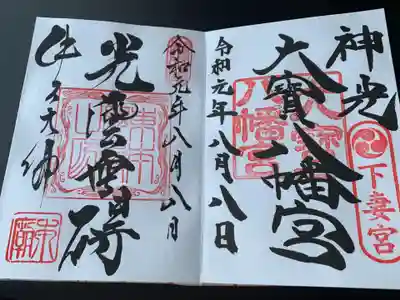 神光
下妻宮
大寳八幡宮
八幡宮
令和元年八月八日
令和元年八月八日
光雲無碍
牛久大佛